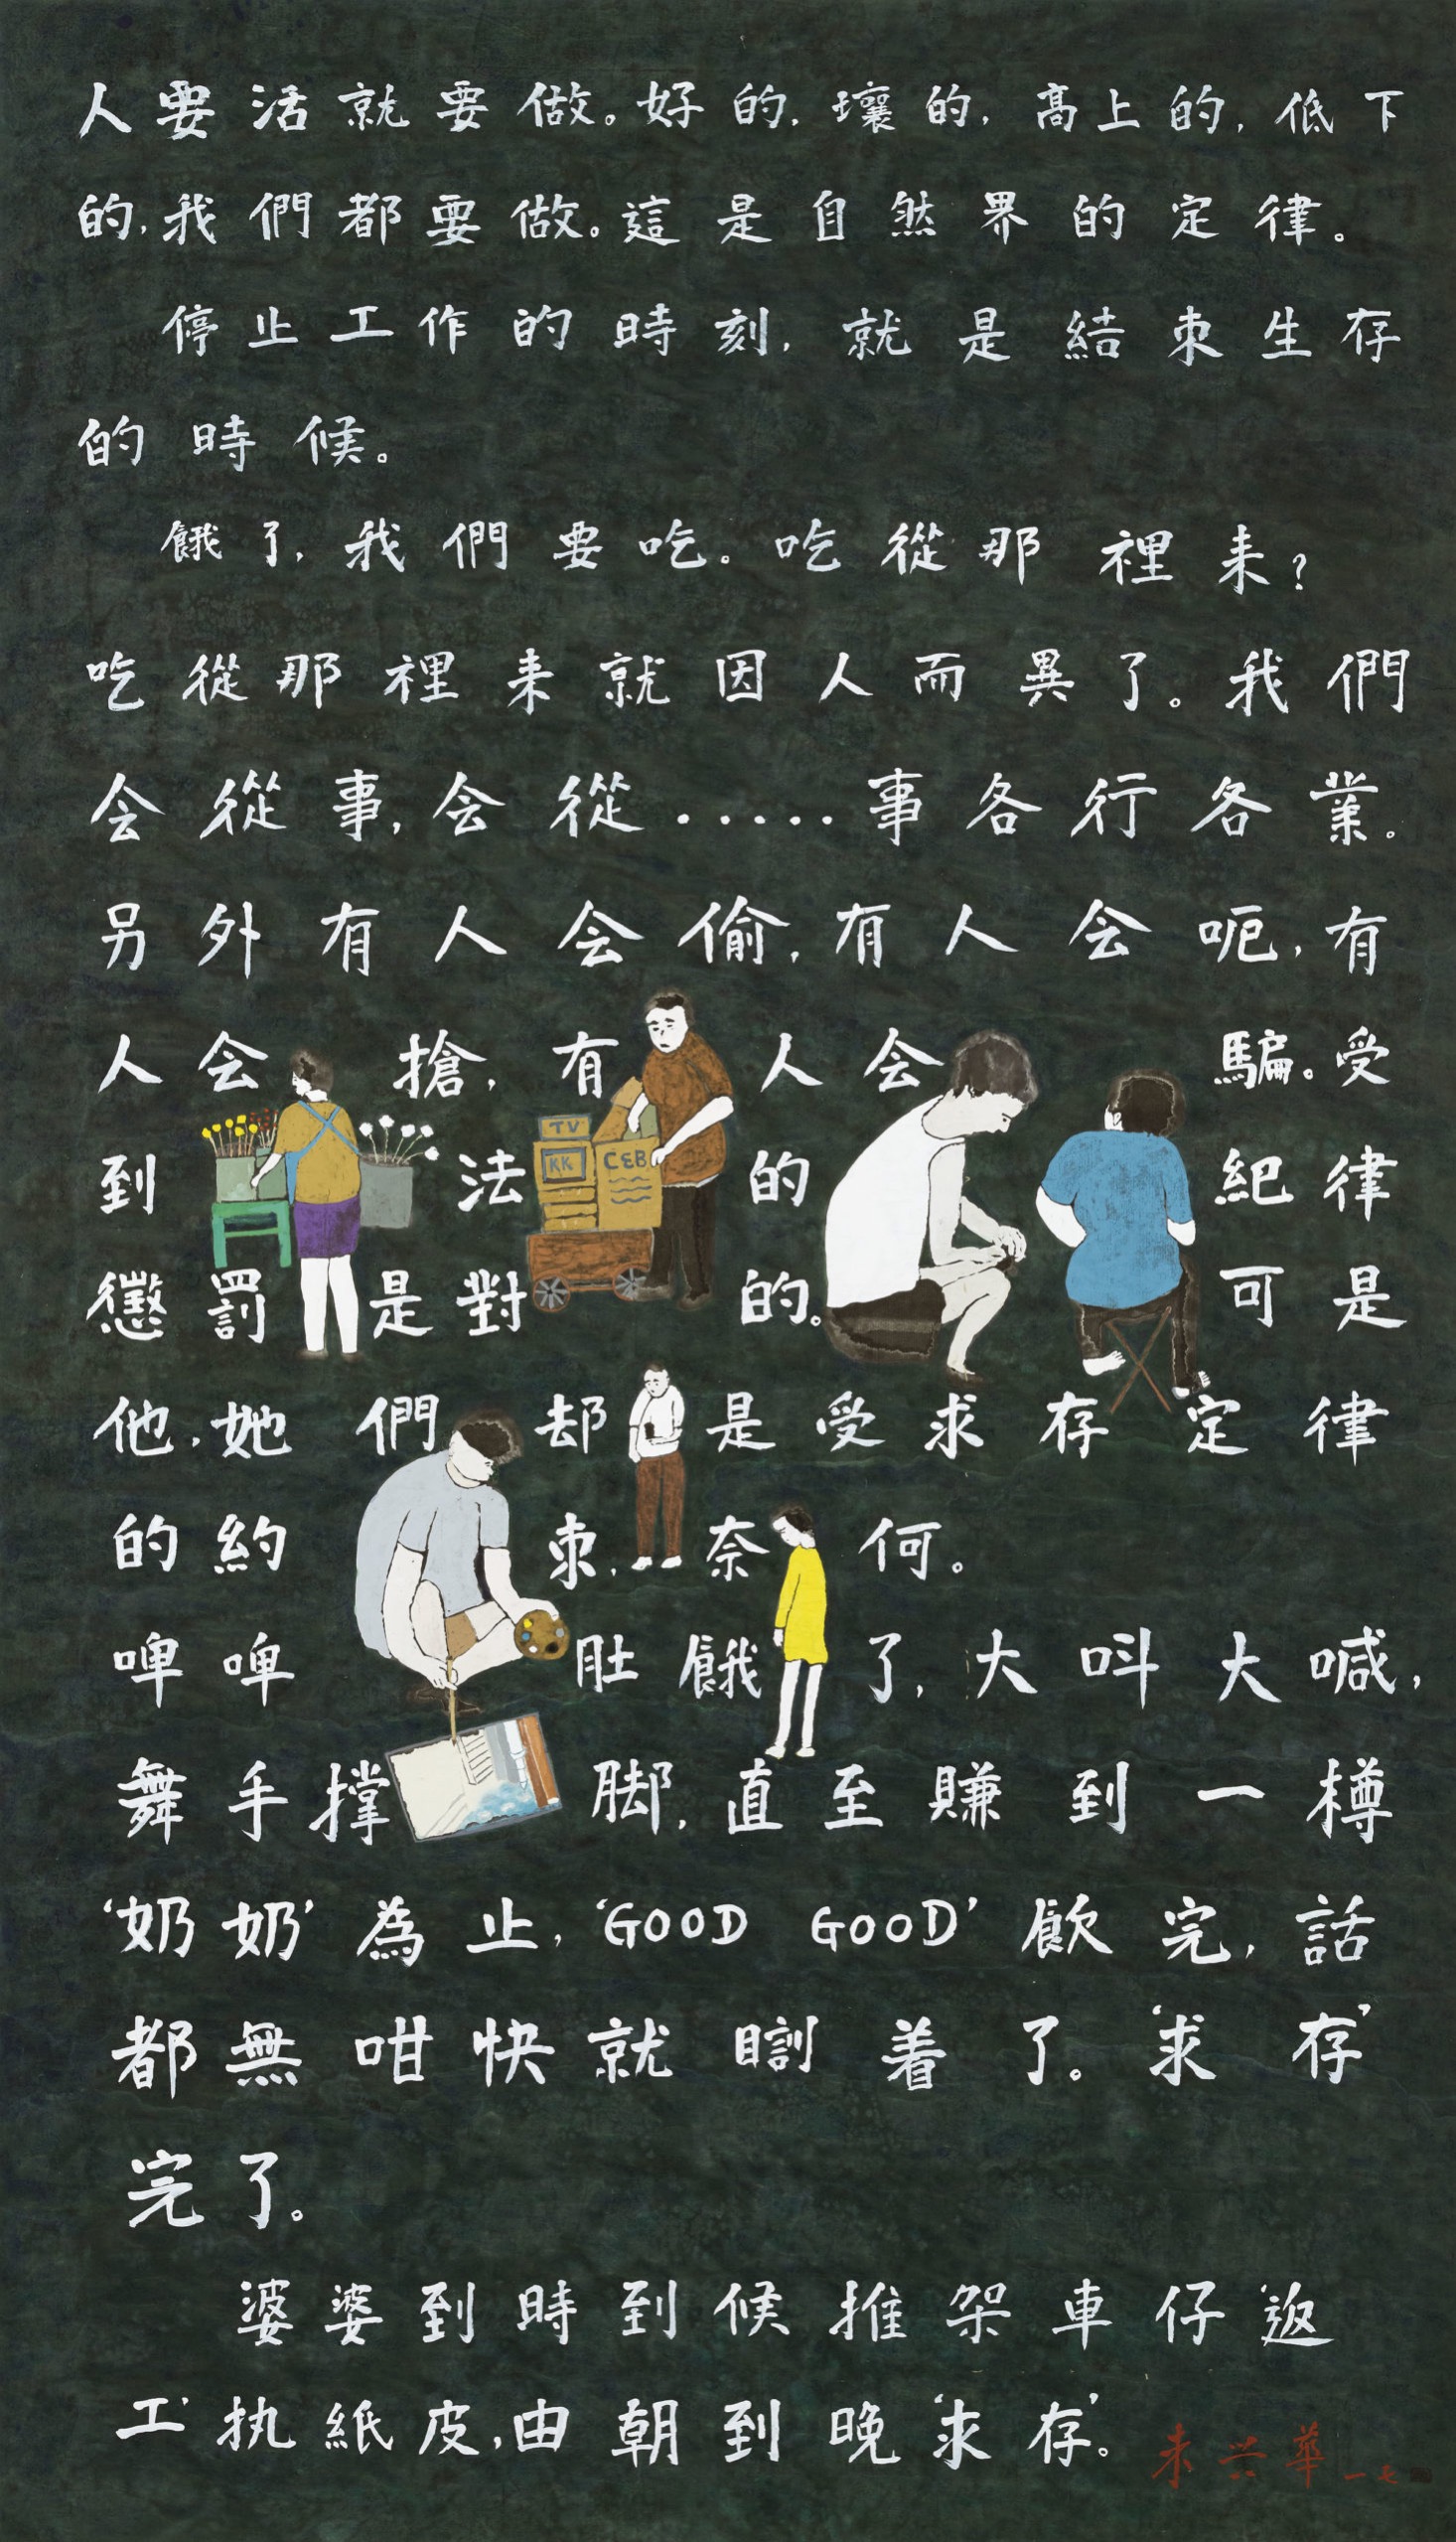 人要活就要做。好的，壤的，高上的，低下
的，我們都要做。這是自然界的定律。
停止工作的時刻，就是結束生存
的時候。
餓了，我們要吃。吃從那裡来？
吃從那裡来就因人而異了。我們
会從事，会從.....事各行各業。
另外有人会偷，有人会呃，有
人会搶，有人会騙。受
到法的紀律
TV
KK
CEB
懲罰是對的。可是
他，她們却是受求存定律
的約束，奈何。
啤啤肚餓了，大呌大喊，
舞手撑脚，直至賺到一樽
‘奶奶’為止，‘GOOD GOOD’飮完，話
都無咁快就瞓着了。‘求存’
完了。
婆婆到時到候推架車仔‘返
工’执紙皮，由朝到晚‘求存’。
朱兴華 一七